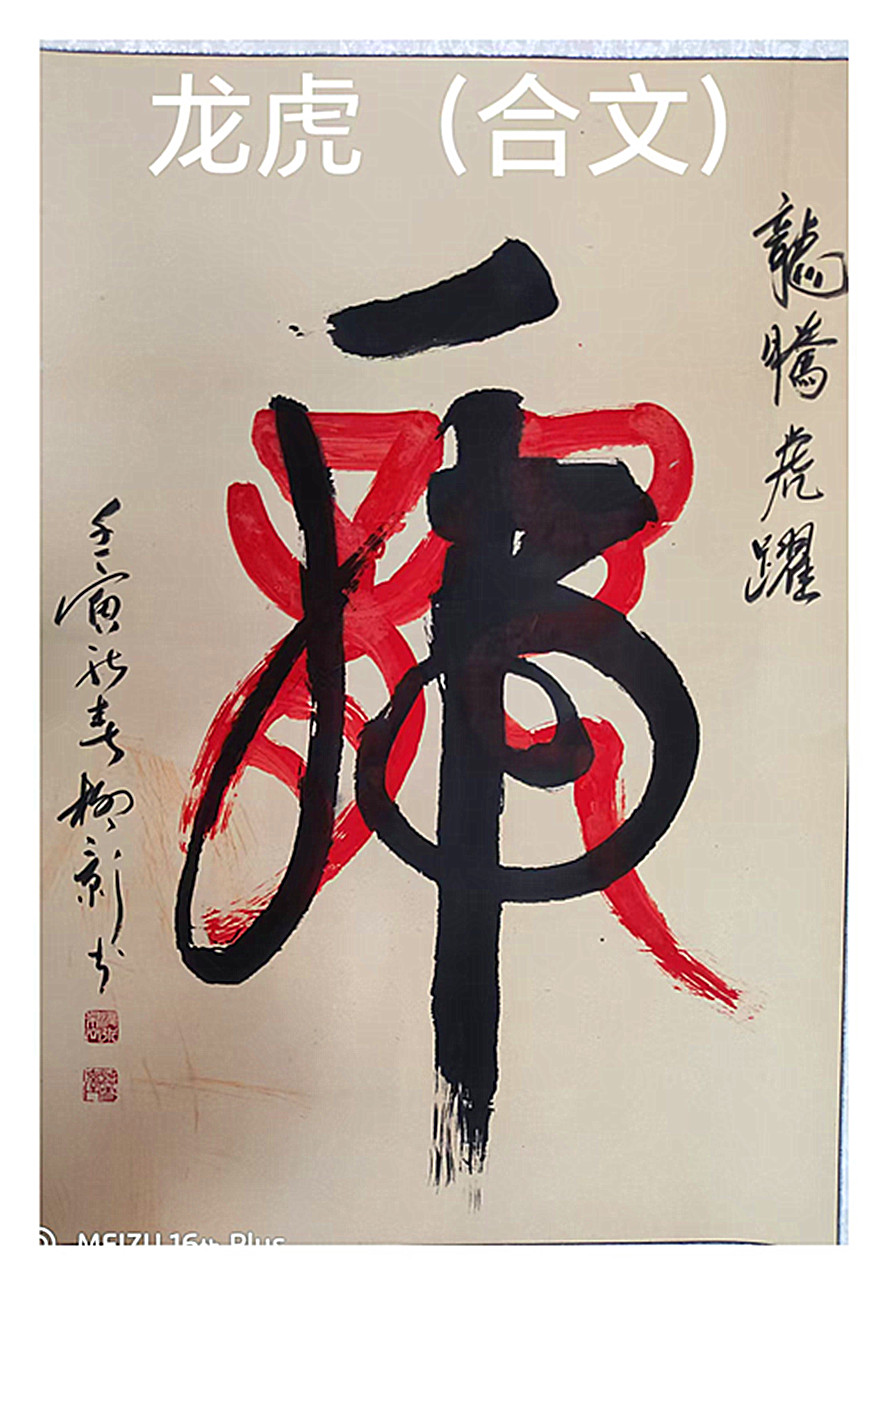 龙虎（合文）
龍騰虎躍
壬寅新春柳彰书
MEIZU 16th Plus